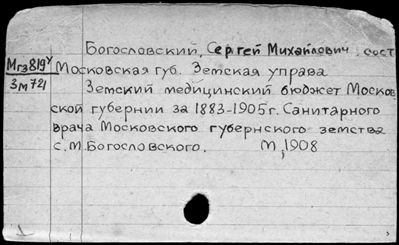 Богословский, Сергей Михайлович, сост
Мгз819у
3м721
Московская губ. Земская управа
Земский медицинский бюджет Москов
ской губернии за 1883-1905г. Санитарного
врача Московского губернского земства
С.М.Богословского. М, 1908